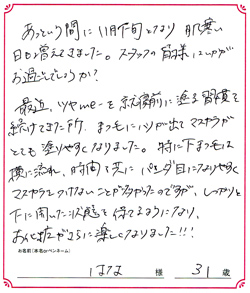 あっという間に11月下旬となり 肌寒い
日も増えてきました。スタッフの皆様いかが
お過ごしでしょうか?
最近、ツヤmeーを就寝前に塗る習慣を
続けてきた所、まつ毛にハリが出てマスカラが
とても塗りやすくなりました。特に下まつ毛は
横に流れ、時間と共にパンダ目になりやすく
マスカラをつけないことが多かったのですが、しっかりと
下に向いた状態を保てるようになり、
お化粧がさらに楽しくなりました!!!
お名前(本名orペンネーム)
はな 様 31歳